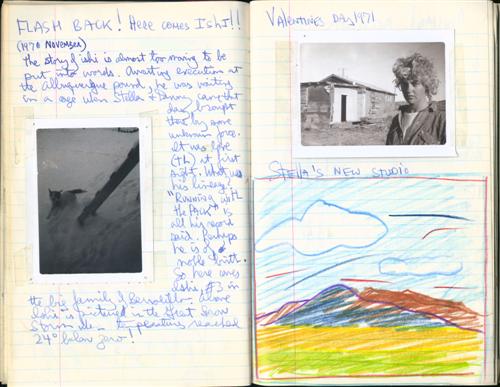 FLASH BACK! HERE COMES IShI!!
(1970 NOVEMBER)
The story of ishi is almost too moving to be
put into words. Awaiting execution at
the Albuquerque pound, he was waiting
in a cage when Stella & Denny came that
day, brought
there by some
unknown force.
It was love
(TH) at first
sight. What was
his lineage?
"Running with
the Pack" is
all his record
said. Perhaps
he is of
noble birth.
So here comes
Ishi, #3 in
the big family of
Above
Ishi is pictured in the Great Snow
Storm
temperatures reached
24° below zero!
VALENTINES DAY 1971
STELLA'S NEW STUDIO